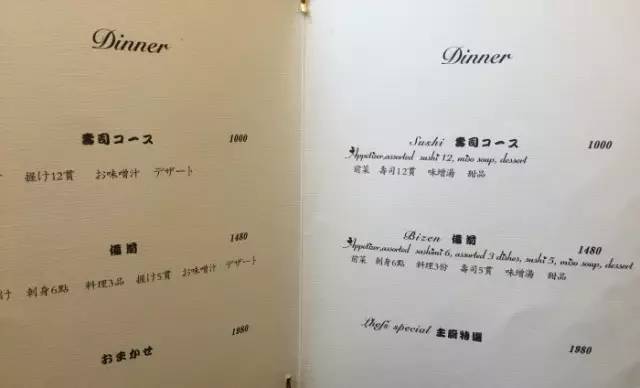 Dinner
寿司コース 1000
握り12貫 お味噌汁 デザート
1480
刺身6點 料理3品 握り5貫 お味噌汁 デザート
1980
おまかせ
Dinner
Sushi 壽司コース 1000
Appetizer,assorted sushi 12, miso soup, dessert
前菜 壽司12貫 味噌湯 甜品
Bizen 備前 1480
Appetizer,assorted sashimi 6, assorted 3 dishes, sushi 5, miso soup, dessert
前菜 刺身6點 料理3份 壽司5貫 味噌湯 甜品
Chefs special 主廚特選 1980